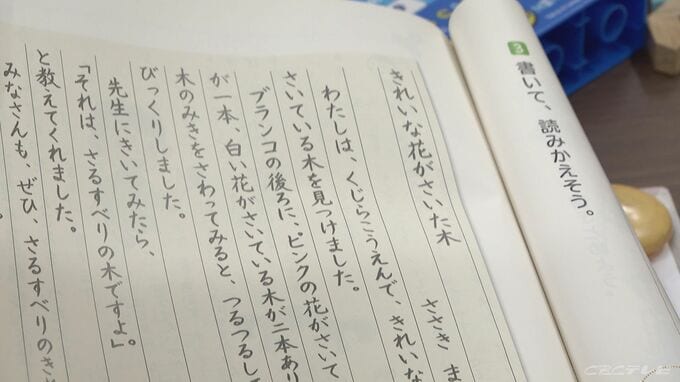 3 書いて、読みかえそう。
きれいな花がさいた木
ささき ま
わたしは、くじらこうえんで、きれいな
さいている木を見つけました。
ブランコの後ろに、ピンクの花がさいて
が一本、白い花がさいている木が二本あり
木のみきをさわってみると、つるつるして
びっくりしました。
先生にきいてみたら、
「それは、さるすべりの木ですよ」。
と教えてくれました。
みなさんも、ぜひ、さるすべりのき
CBCテレビ